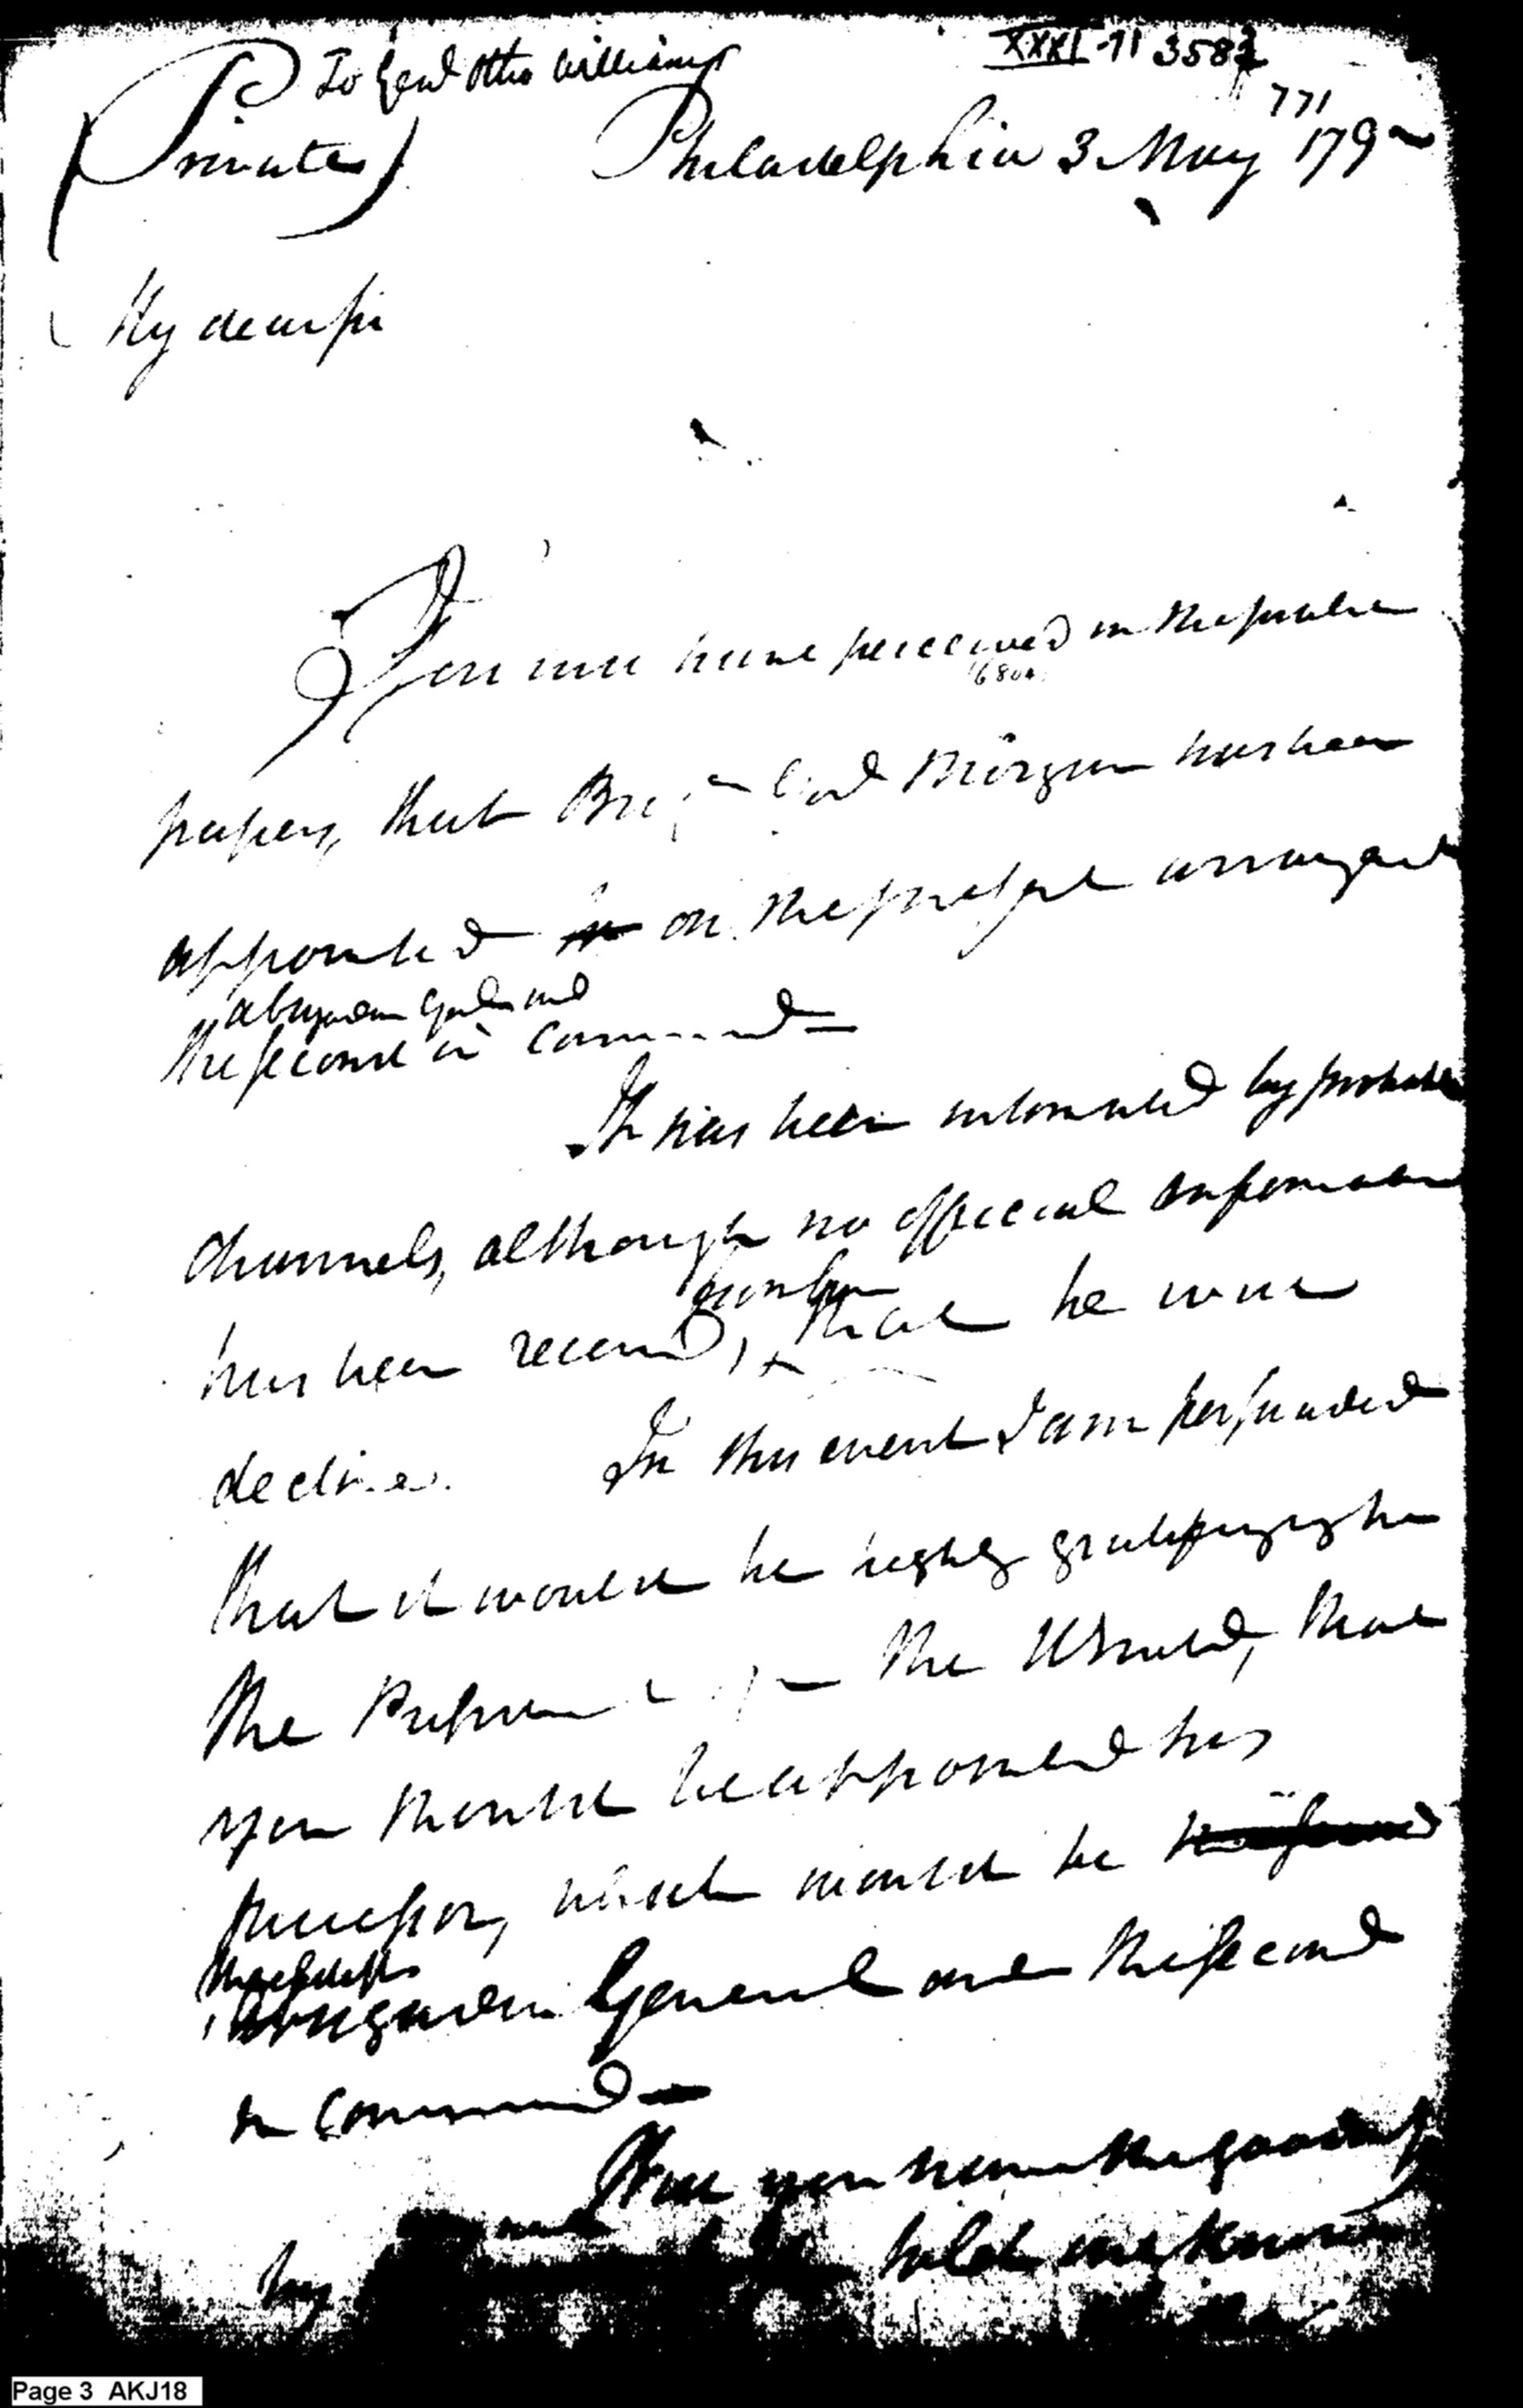 To Genl Otho Williams
XXXI-71 3583
771
(Private) Philadelphia 3 May 179
My dear sir
You will have perceived in the public
papers, that Brigr Genl Morgan has been
appointed on the present arrangemt
a brigadier Genl and
the second in command—
It has been intimated by probable
channels, although no official information
has been received, from him that he will
decline. In this event I am persuaded
that it would be highly gratifying to
the President of the U States, that
you should be appointed his
successor, which would be
the eldest
brigadier General and the second
in command—
Will you have the goodness
by to let me know
Page 3 AKJ18